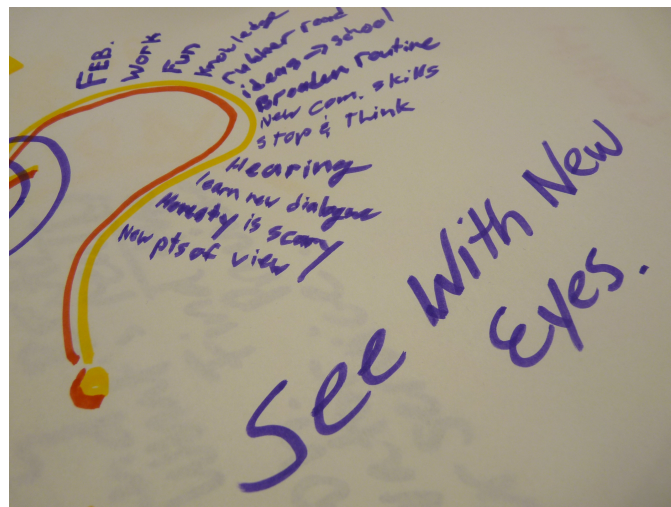 FEB.
Work
Fun
Knowledge
rubber road
ideas → school
Broaden routine
New com. skills
stop & Think
Hearing
learn new dialogue
Honesty is scary
New pts of view
See With New
Eyes.